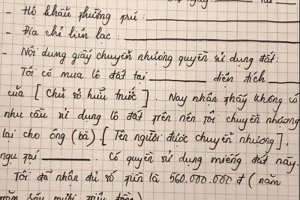 - Hộ khẩu thường trú :
- Địa chỉ liên lạc :
- Nội dung giấy chuyển nhượng quyền sử dụng đất.
Tôi có mua lô đất tại diện tích
của [ Chủ sở hữu trước ] . Nay nhận thấy không có
nhu cầu sử dụng lô đất trên nên tôi chuyển nhượng
lại cho ông (bà) [ Tên người được chuyển nhượng ] ,
ngụ tại . Có quyền sử dụng miếng đất này
Tôi đã nhận đủ số tiền là 560.000.000 đ ( năm
trăm sáu mươi triệu đồng )